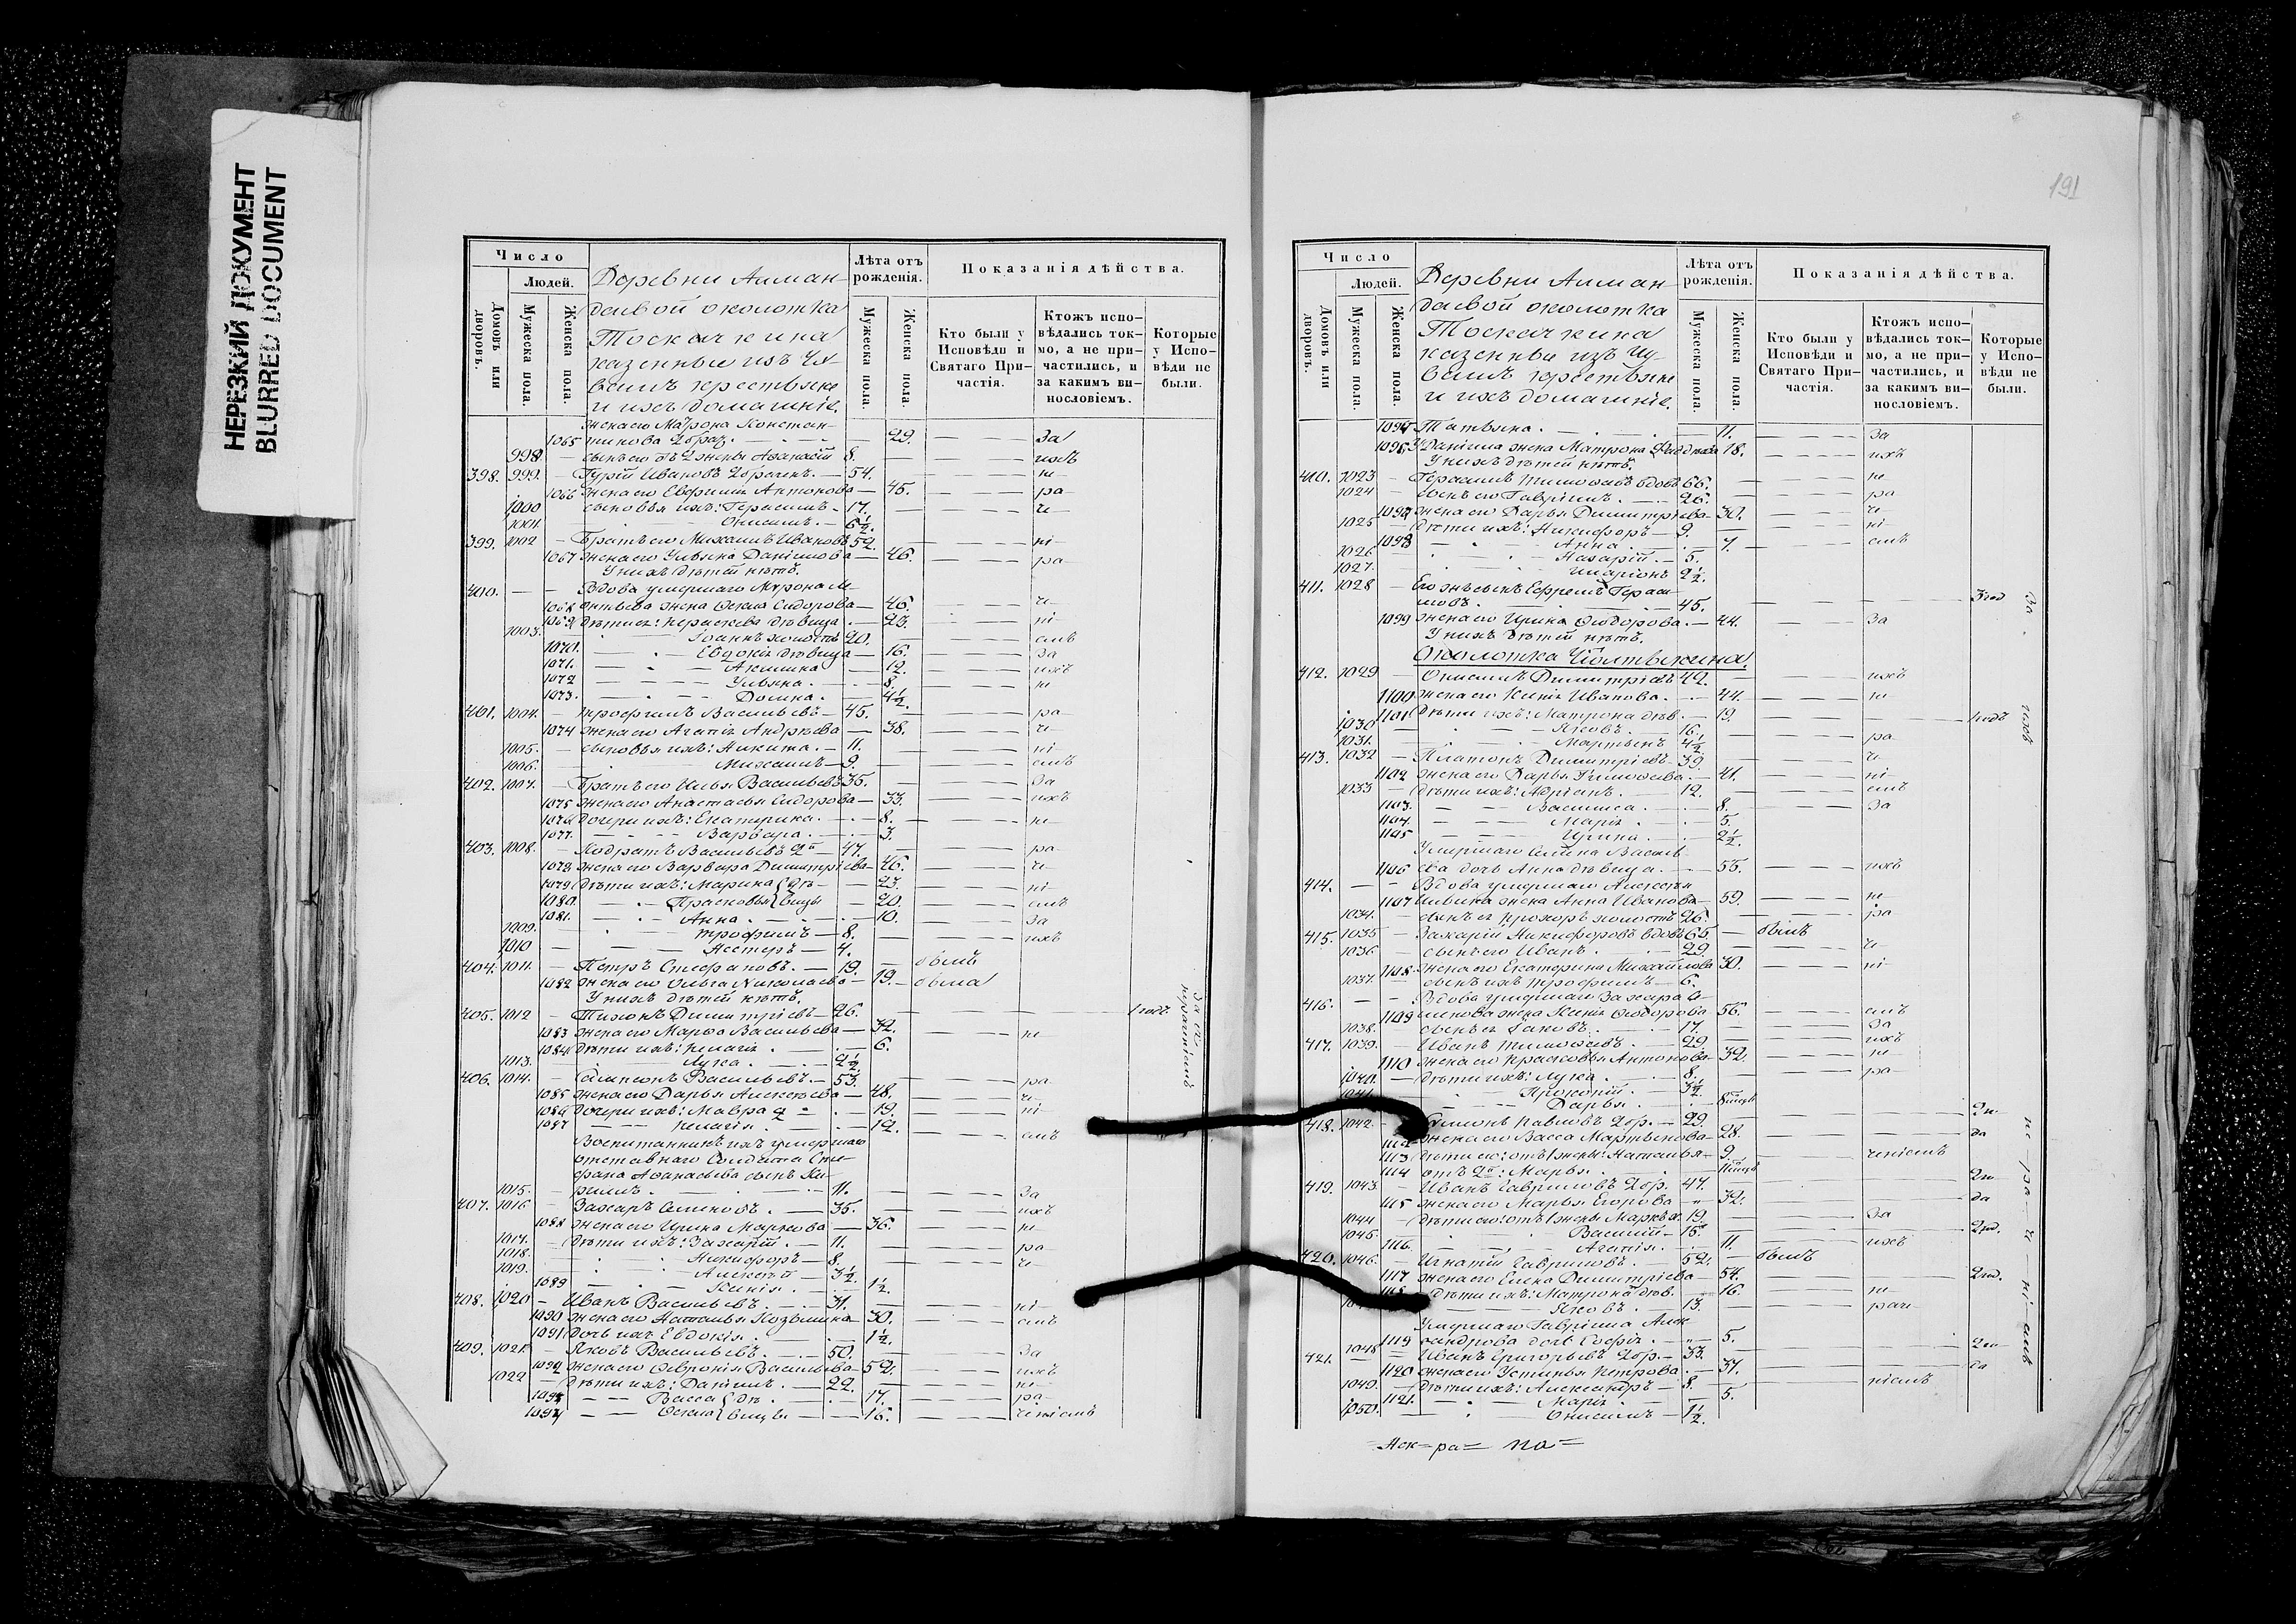 НЕРЕЗКИЙ ДОКУМЕНТ
BLURRED DOCUMENT
Число
Людей.
Домовъ или дворовъ.
Мужеска пола.
Женска пола.
Деревни Алман-
даевой околотка
Тоскачкина
казенные изъ Чу-
вашъ крестьяне
и ихъ домашніе.
Лѣта отъ рожденія.
Мужеска пола.
Женска пола.
Показанія дѣйства.
Кто были у Исповѣди и Святаго Причастія.
Ктожъ испо-
вѣдались ток-
мо, а не при-
частились, и
за какимъ ви-
нословіемъ.
Которые
у Испо-
вѣди не
были.
жена его Матрона Констан-
1065 тинова 2 бра. 29. За
998 сынъ его отъ 1 жены Аѳанасій 8. ихъ
398. 999. Гурій Ивановъ 2 бракъ. 54. не
1066 жена его Евфимія Антонова 45. ра
1000 сыновья ихъ: Герасимъ 17. че
1001. Онисимъ. 6½.
399. 1002 Братъ его Михаилъ Ивановъ 52. ні
1067 жена его Ульяна Даніилова 46. ра
У нихъ дѣтей нѣтъ.
400. Вдова умершаго Мирона Ле-
1068 онтьева жена Ѳекла Сидорова 46. че
1069 дѣти ея: Параскева дѣвица 23. ні
1003. Іоаннъ холостъ 20. емъ
1070. Евдокія дѣвица 16. За
1071. Акилина 12. ихъ
1072 Ульяна. 8. не
1073. Домна. 4½.
401. 1004. Трофимъ Васильевъ 45. ра
1074 жена его Агапія Андреева 38. че
1005. сыновья ихъ: Никита. 11. ні
1006. Михаилъ 9. емъ
402. 1007. Братъ его Илья Васильевъ 35. За
1075 жена его Анастасья Сидорова 33. ихъ
1076 дочери ихъ: Екатерина. 8. не
1077. Варвара. 3.
403. 1008. Кодратъ Васильевъ 2й 47. ра
1078 жена его Варвара Димитріева 46. че
1079 дѣти ихъ: Марина дѣ- 23. ні
1080. Прасковья вицы 20. емъ
1081. Анна. 10. За
1009. Трофимъ 8. ихъ
1010 Нестеръ 4.
404. 1011. Петръ Стефановъ. 19. былъ
1082 жена его Ольга Николаева 19. была
У нихъ дѣтей нѣтъ.
405. 1012 Тихонъ Димитріевъ 26. 1 годъ
1083 жена его Марѳа Васильева 32. не
1084 дѣти ихъ: Пелагія. 6.
1013. Лука. 2½
406. 1014. Сампсонъ Васильевъ. 53. ра
1085 жена его Дарья Алексѣева 48. че
1086 дочери ихъ: Мавра 19. ні
1087 Пелагія. 12. емъ
Воспитанникъ ихъ умершаго
отставнаго Солдата Сте-
фана Аѳанасьева сынъ Ки-
1015. риллъ. 11. За
407. 1016 Захаръ Семеновъ. 35. ихъ
1088 жена его Ирина Маркова 36. не
1017. дѣти ихъ: Захарій. 11. ра
1018. Никифоръ 8. че
1019. Алексѣй 3½.
1089 Ксенія. 1½.
408. 1020 Иванъ Васильевъ. 31. ні
1090 жена его Наталья Козьмина 30. емъ
1091 дочь ихъ Евдокія. 1½.
409. 1021. Яковъ Васильевъ. 50. За
1092 жена его Ѳевронія Васильева 52. ихъ
1022 дѣти ихъ: Даніилъ. 22. не
1093 Васса дѣ- 17. ра
1094 Ѳекла вицы 16. ченіемъ
за его нераченіемъ
191
Число
Людей.
Домовъ или дворовъ.
Мужеска пола.
Женска пола.
Деревни Алман-
даевой околотка
Тоскачкина
казенные изъ Чу-
вашъ крестьяне
и ихъ домашніе.
Лѣта отъ рожденія.
Мужеска пола.
Женска пола.
Показанія дѣйства.
Кто были у Исповѣди и Святаго Причастія.
Ктожъ испо-
вѣдались ток-
мо, а не при-
частились, и
за какимъ ви-
нословіемъ.
Которые
у Испо-
вѣди не
были.
Татьяна. 11. За
У Даніила жена Матрона 18. ихъ
У нихъ дѣтей нѣтъ.
410. 1023 Герасимъ Тимоѳеевъ вдовъ 66. не
1024 сынъ его Гавріилъ. 26. ра
1097 жена его Дарья Димитріева 30. че
1025 дѣти ихъ: Никифоръ 9. ні
1098 Анна. 7. емъ
1026 Назарій. 5.
1027. Иларіонъ 2½.
411. 1028 Его же сынъ Ефремъ Гераси-
мовъ. 45. 3 год
1099 жена его Ирина Ѳеодорова. 44. За
У нихъ дѣтей нѣтъ.
412. 1029 Онисимъ Димитріевъ 42. ихъ
1100 жена его Ксенія Иванова. 44. не
1101 дѣти ихъ: Матрона дѣв. 19. 1 годъ
1030 Яковъ. 16.
1031. Мартынъ 4½. ра
413. 1032 Платонъ Димитріевъ 39. че
1102 жена его Дарья Тимоѳеева. 41. ні
1033 дѣти ихъ: Адріанъ. 12. емъ
1103. Василиса. 8. За
1104. Марія. 5.
1105 Ирина. 2½.
Умершаго Семена Василь-
1106 ева дочь Анна дѣвица. 55. ихъ
414. Вдова умершаго Алексѣя
1107 Ильина жена Анна Иванова 59. не
1034. сынъ ея Прохоръ холостъ 26. ра
415. 1035 Захарій Никифоровъ вдовъ 65 былъ
1036 сынъ его Иванъ. 29. че
1108 жена его Екатерина Михайлова 30. ні
1037. сынъ ихъ Трофимъ 6.
416. Вдова умершаго Захара Се-
1109 менова жена Ксенія Ѳеодорова 56. емъ
1038. сынъ ея Іаковъ. 17. За
417. 1039. Иванъ Тимоѳеевъ. 29. ихъ
1110 жена его Прасковья Антонова 32. не
1040. дѣти ихъ: Лука. 8. ра
1041. Прокопій 3½
Дарья.
418. 1042. Симонъ Павловъ 2 бр. 29. 2 го
жена его Васса Мартынова 28. да
1113 дѣти его: отъ 1 жены: Наталья 9. ченіемъ
1114 отъ 2й: Марья.
419. 1043. Иванъ Гавриловъ 2 бр. 47. 2 го
1115 жена его Марья Егорова 32. да
1044 дѣти его: отъ 1 жены Маркъ х. 19. За
1045. Василій 15. 2 год.
1116. Агапія. 11. ихъ
420. 1046. Игнатій Гавриловъ. 52. былъ
1117 жена его Елена Димитріева 54. 2 год.
дѣти ихъ: Матрона дѣв. 16. не
Яковъ. 13. раче
Умершаго Гавріила Алек-
1119 сандрова дочь Софія. 5.
421. 1048 Иванъ Григорьевъ 2 бр. 33. 2 го
1120 жена его Устинья Петрова 37. да
1049. дѣти ихъ: Александръ 8. ніемъ
1121. Марія 5.
1050. Онисимъ 1½.
За ихъ не-ра-че-ні-емъ